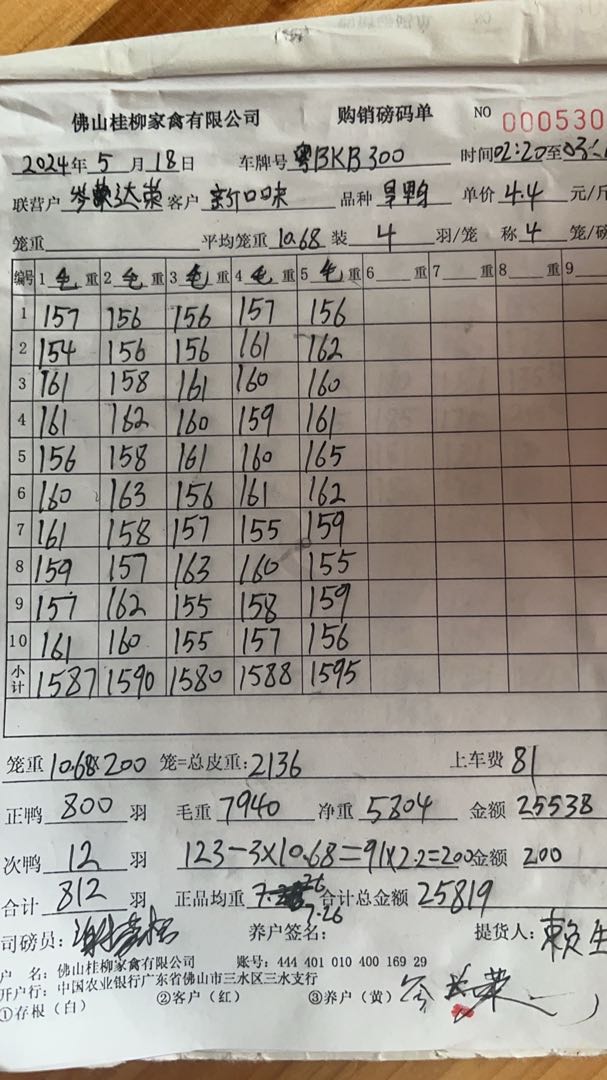 佛山桂柳家禽有限公司 购销磅码单 NO 000530
2024年 5 月 18 日 车牌号 粤BKB300 时间02:20至03:
联营户 岑荣达荣 客户 新口味 品种 旱鸭 单价 4.4 元/斤
笼重 平均笼重 10.68 装 4 羽/笼 称 4 笼/磅
编号 1 毛 重 2 毛 重 3 毛 重 4 毛 重 5 毛 重 6 重 7 重 8 重 9
1 157 156 156 157 156
2 154 156 156 161 162
3 161 158 161 160 160
4 161 162 160 159 161
5 156 158 161 160 165
6 160 163 156 161 162
7 161 158 157 155 159
8 159 157 163 160 155
9 157 162 155 158 159
10 161 160 155 157 156
小计 1587 1590 1580 1588 1595
笼重 10.68×200 笼=总皮重: 2136 上车费 81
正鸭 800 羽 毛重 7940 净重 5804 金额 25538
次鸭 12 羽 123-3×10.68=91×2.2=200 金额 200
合计 812 羽 正品均重 7.26 合计总金额 25819
7.26
司磅员: 养户签名: 提货人: 赖生
户 名: 佛山桂柳家禽有限公司 账号: 444 401 010 400 169 29
开户行: 中国农业银行广东省佛山市三水区三水支行
①存根（白） ②客户（红） ③养户（黄）